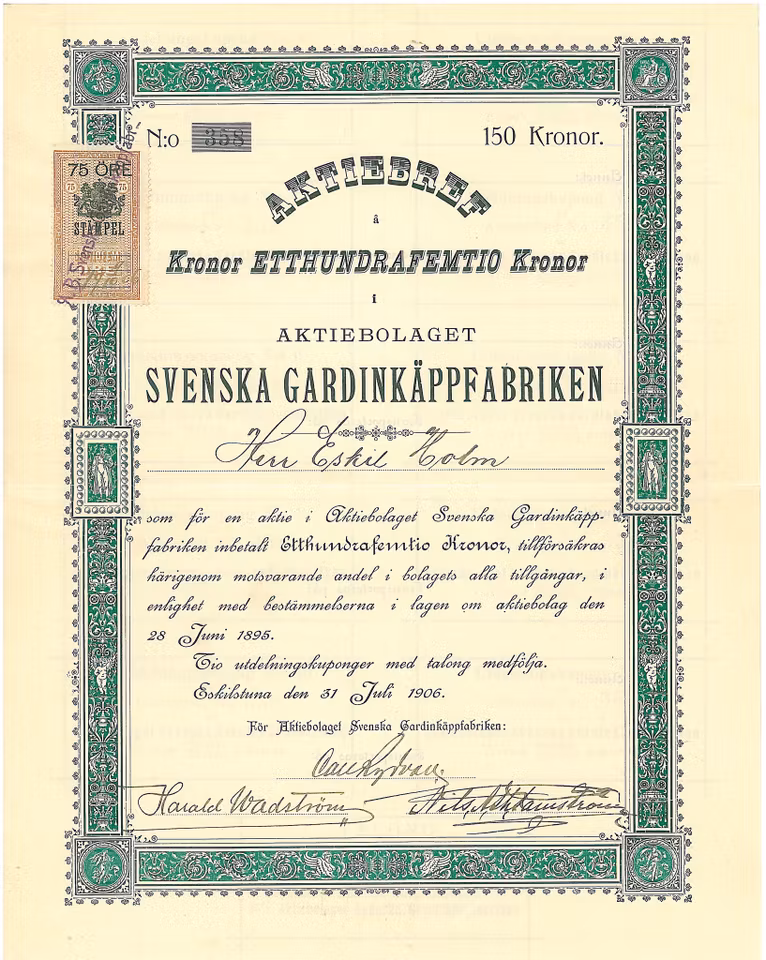 N:o 358
150 Kronor.
75 ÖRE
75 75
STÄMPEL
A.B. Svenska
AKTIEBREF
à
Kronor ETTHUNDRAFEMTIO Kronor
i
AKTIEBOLAGET
SVENSKA GARDINKÄPPFABRIKEN
Herr Eskil Holm
som för en aktie i Aktiebolaget Svenska Gardinkäpp-
fabriken inbetalt Etthundrafemtio Kronor, tillförsäkras
härigenom motsvarande andel i bolagets alla tillgångar, i
enlighet med bestämmelserna i lagen om aktiebolag den
28 Juni 1895.
Tio utdelningskuponger med talong medfölja.
Eskilstuna den 31 Juli 1906.
För Aktiebolaget Svenska Gardinkäppfabriken:
Harald Wadström